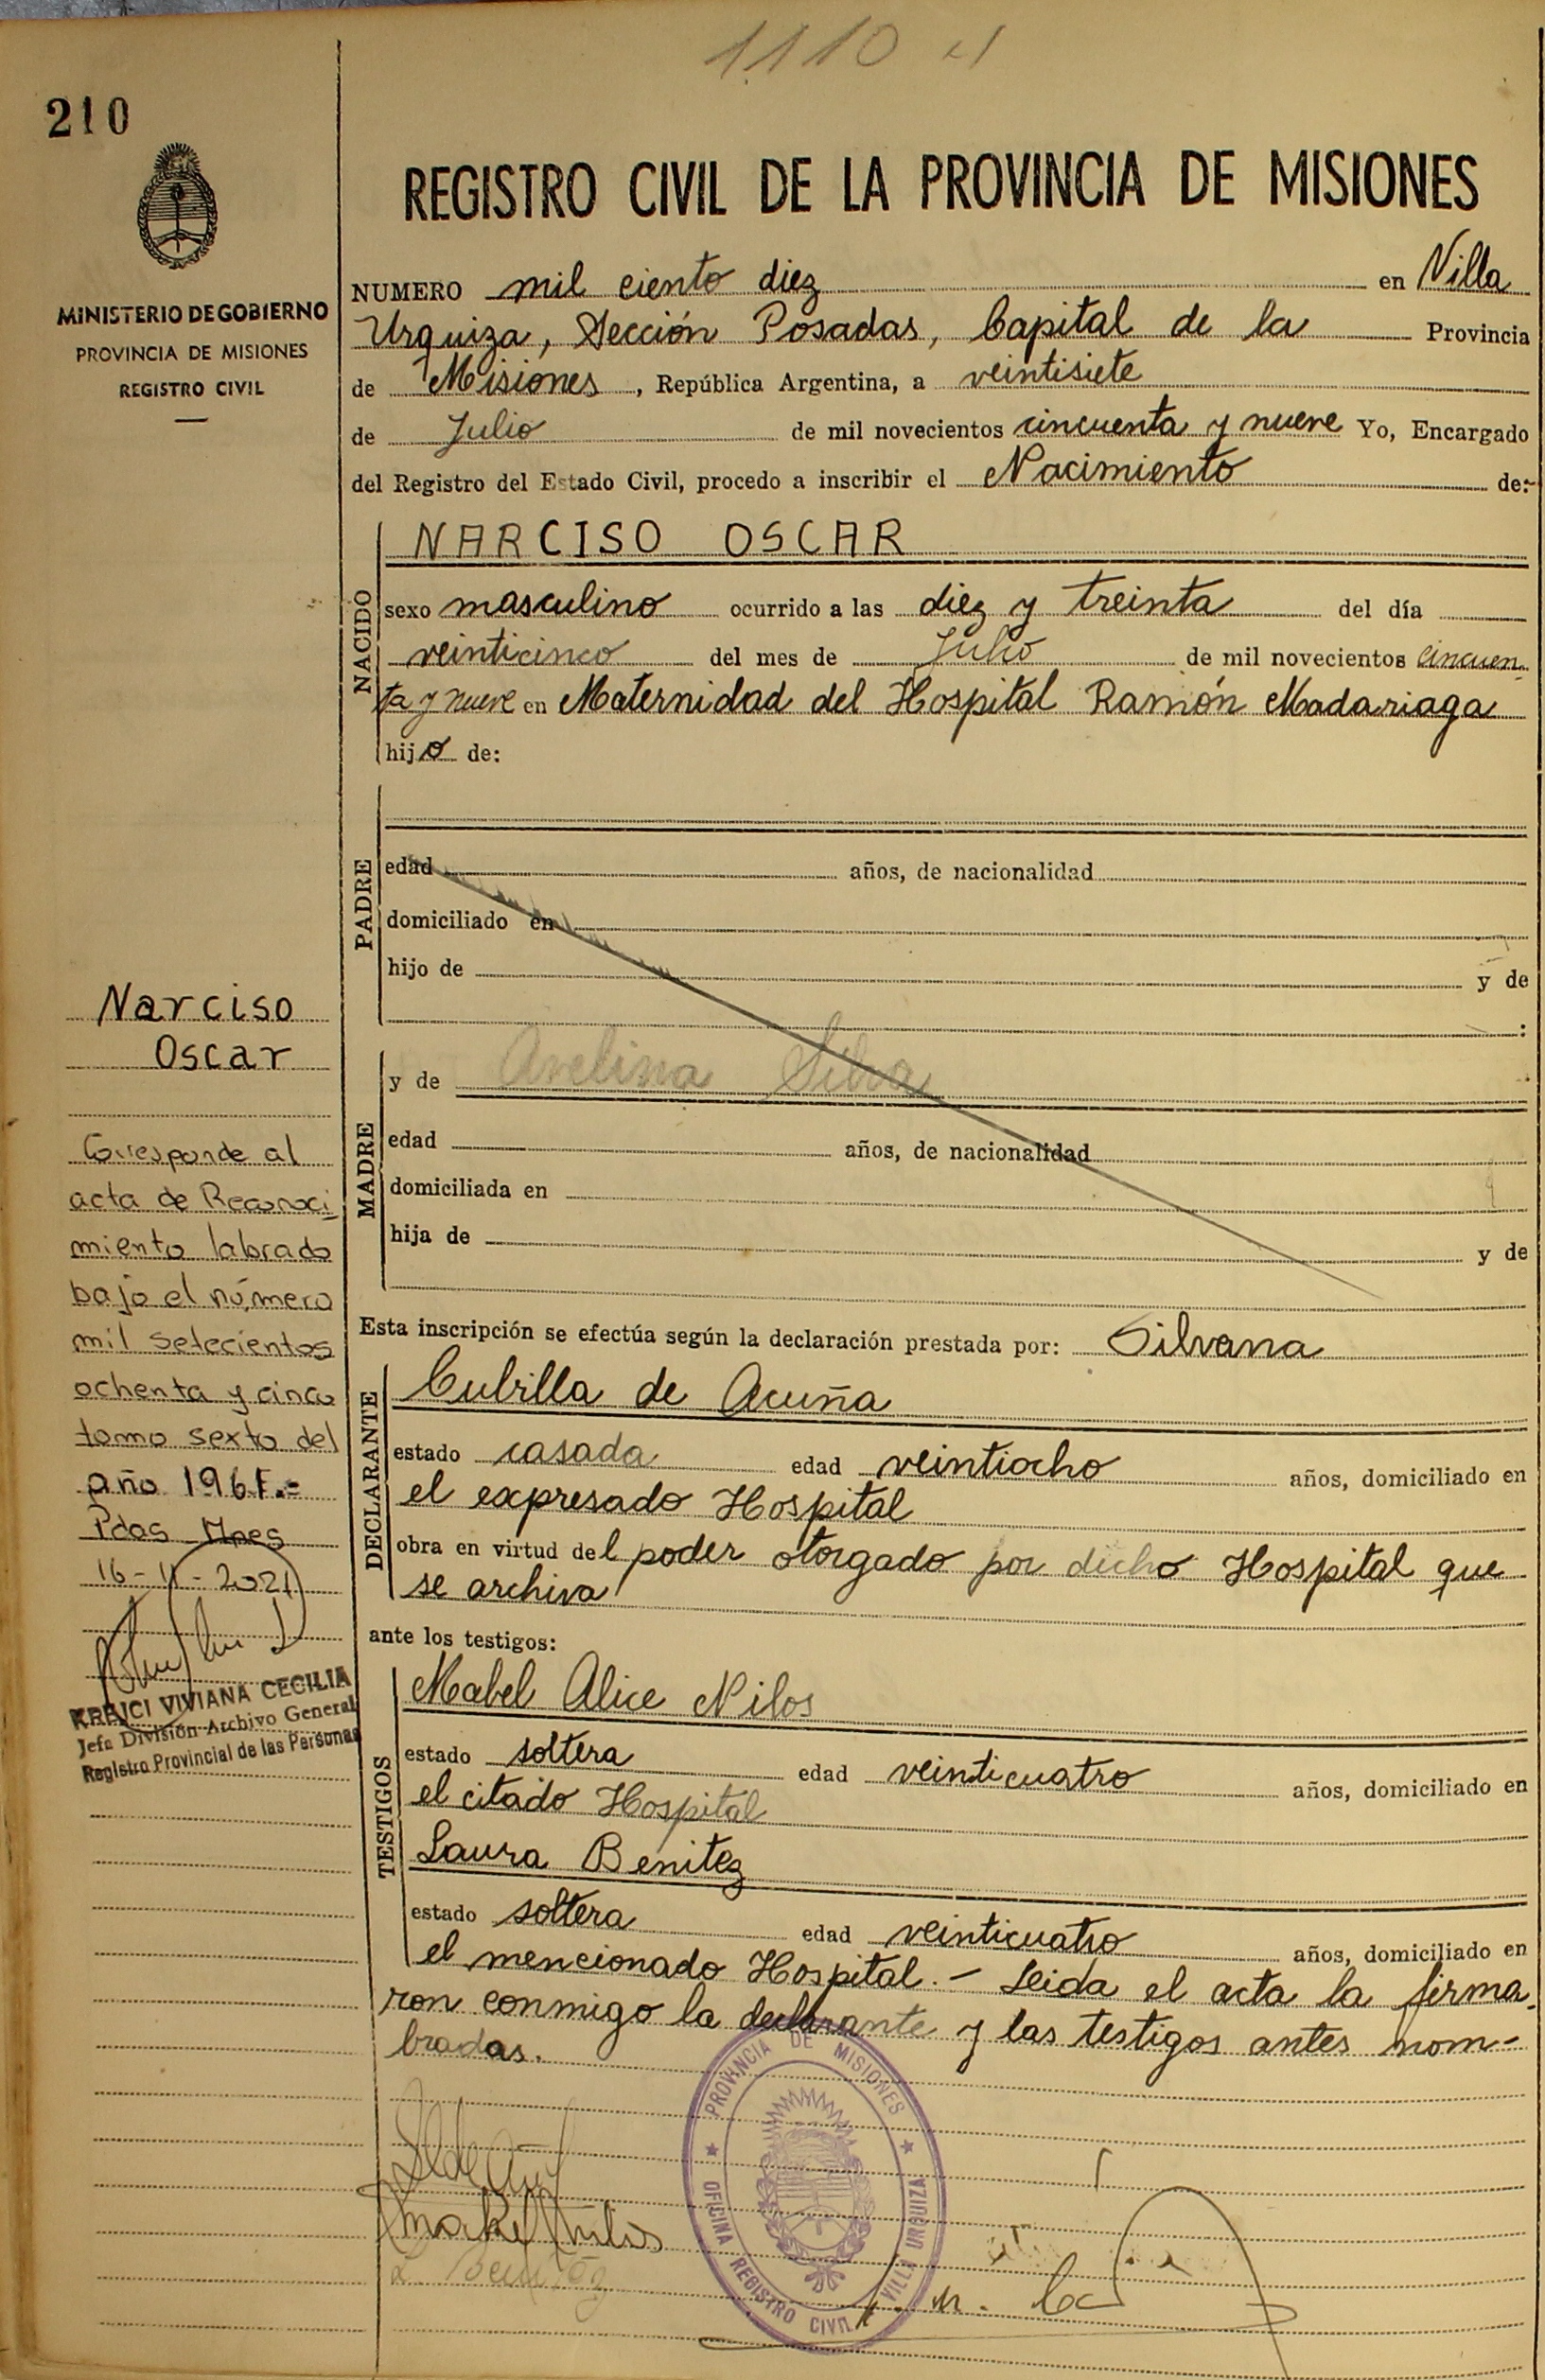 1110
210
REGISTRO CIVIL DE LA PROVINCIA DE MISIONES
MINISTERIO DE GOBIERNO
PROVINCIA DE MISIONES
REGISTRO CIVIL
NUMERO mil ciento diez en Villa
Urquiza, Sección Posadas, Capital de la Provincia
de Misiones, República Argentina, a veintisiete
de Julio de mil novecientos cincuenta y nueve Yo, Encargado
del Registro del Estado Civil, procedo a inscribir el Nacimiento de:
NACIDO
NARCISO OSCAR
sexo masculino ocurrido a las diez y treinta del día
veinticinco del mes de Julio de mil novecientos cincuen-
ta y nueve en Maternidad del Hospital Ramón Madariaga
hijo de:
PADRE
edad años, de nacionalidad
domiciliado en
hijo de y de
:
MADRE
y de Avelina Silva
edad años, de nacionalidad
domiciliada en
hija de y de
Esta inscripción se efectúa según la declaración prestada por: Silvana
DECLARANTE
Cubilla de Acuña
estado casada edad veintiocho años, domiciliado en
el expresado Hospital
obra en virtud del poder otorgado por dicho Hospital que
se archiva
ante los testigos:
TESTIGOS
Mabel Alice Nilos
estado soltera edad veinticuatro años, domiciliado en
el citado Hospital
Laura Benitez
estado soltera edad veinticuatro años, domiciliado en
el mencionado Hospital.- Leida el acta la firma-
ron conmigo la declarante y las testigos antes nom-
bradas.
Narciso
Oscar
Corresponde al
acta de Reconoci-
miento labrado
bajo el número
mil setecientos
ochenta y cinco
tomo sexto del
año 1961.-
Pdas Mnes
16-11-2021
KREJCI VIVIANA CECILIA
Jefa División Archivo General
Registro Provincial de las Personas
Mabel Nilos
L Benitez
PROVINCIA DE MISIONES
OFICINA REGISTRO CIVIL VILLA URQUIZA